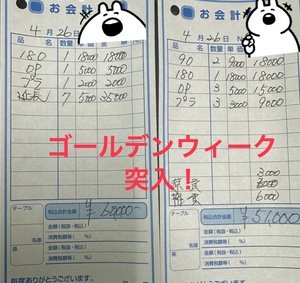 お会計
4月26日
品名 数量 単価 金額
180 1 18000 18000
OP 1 5000 5000
プラ 1 2000 2000
延長 7 5000 35000
テーブル
税込合計金額 ¥60,000-
金額(税抜・税込)
消費税額等( %)
金額(税抜・税込)
消費税額等( %)
係名
様
毎度ありがとうございます
お会計
4月26日
品名 数量 単価
90 2 9000 18000
180 1 18000 18000
OP 3 5000 15000
プラ 3 3000 9000
3000
6000
テーブル
税込合計金額 ¥51,000
金額(税抜・税込)
消費税額等( %)
金額(税抜・税込)
消費税額等( %)
係名
様
ゴールデンウィーク
突入!